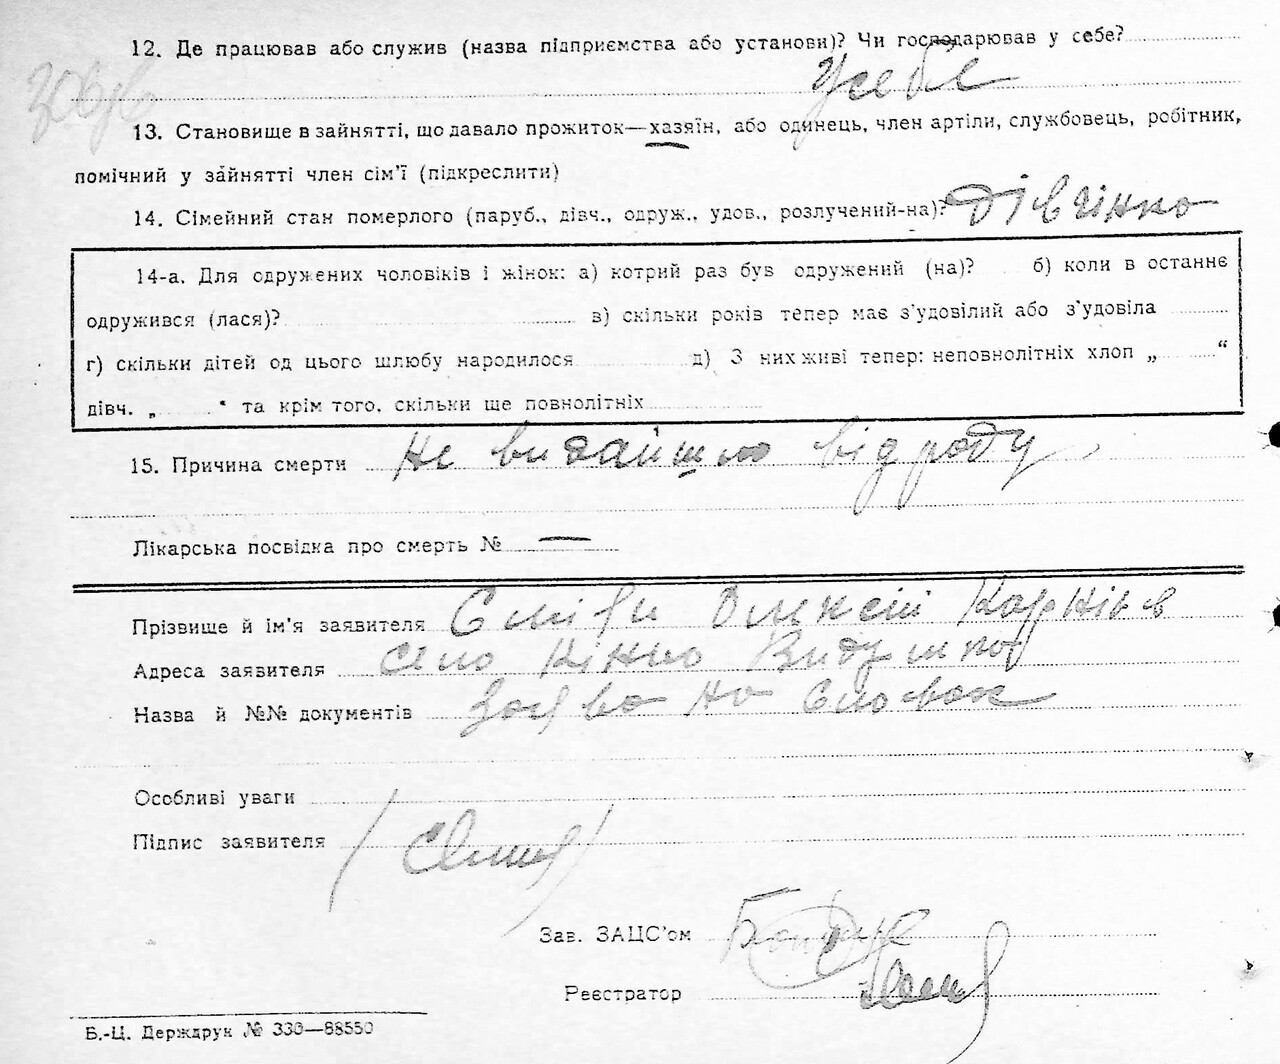 12. Де працював або служив (назва підприємства або установи)? Чи господарював у себе?
Усебе
13. Становище в зайнятті, що давало прожиток—хазяїн, або одинець, член артілі, службовець, робітник,
помічний у зайнятті член сім'ї (підкреслити)
14. Сімейний стан померлого (паруб., дівч., одруж., удов., розлучений-на)? Дівчінко
14-а. Для одружених чоловіків і жінок: а) котрий раз був одружений (на)? б) коли в останнє
одружився (лася)? в) скільки років тепер має з'удовілий або з'удовіла
г) скільки дітей од цього шлюбу народилося д) З них живі тепер: неповнолітніх хлоп „ “
дівч. „ “ та крім того, скільки ще повнолітніх
15. Причина смерти Не від роду
Лікарська посвідка про смерть № —
Прізвище й ім'я заявителя Олексій
Адреса заявителя село
Назва й №№ документів Заява на
Особливі уваги
Підпис заявителя
Зав. ЗАЦС'ом
Реєстратор
Б.-Ц. Держдрук № 330—88550